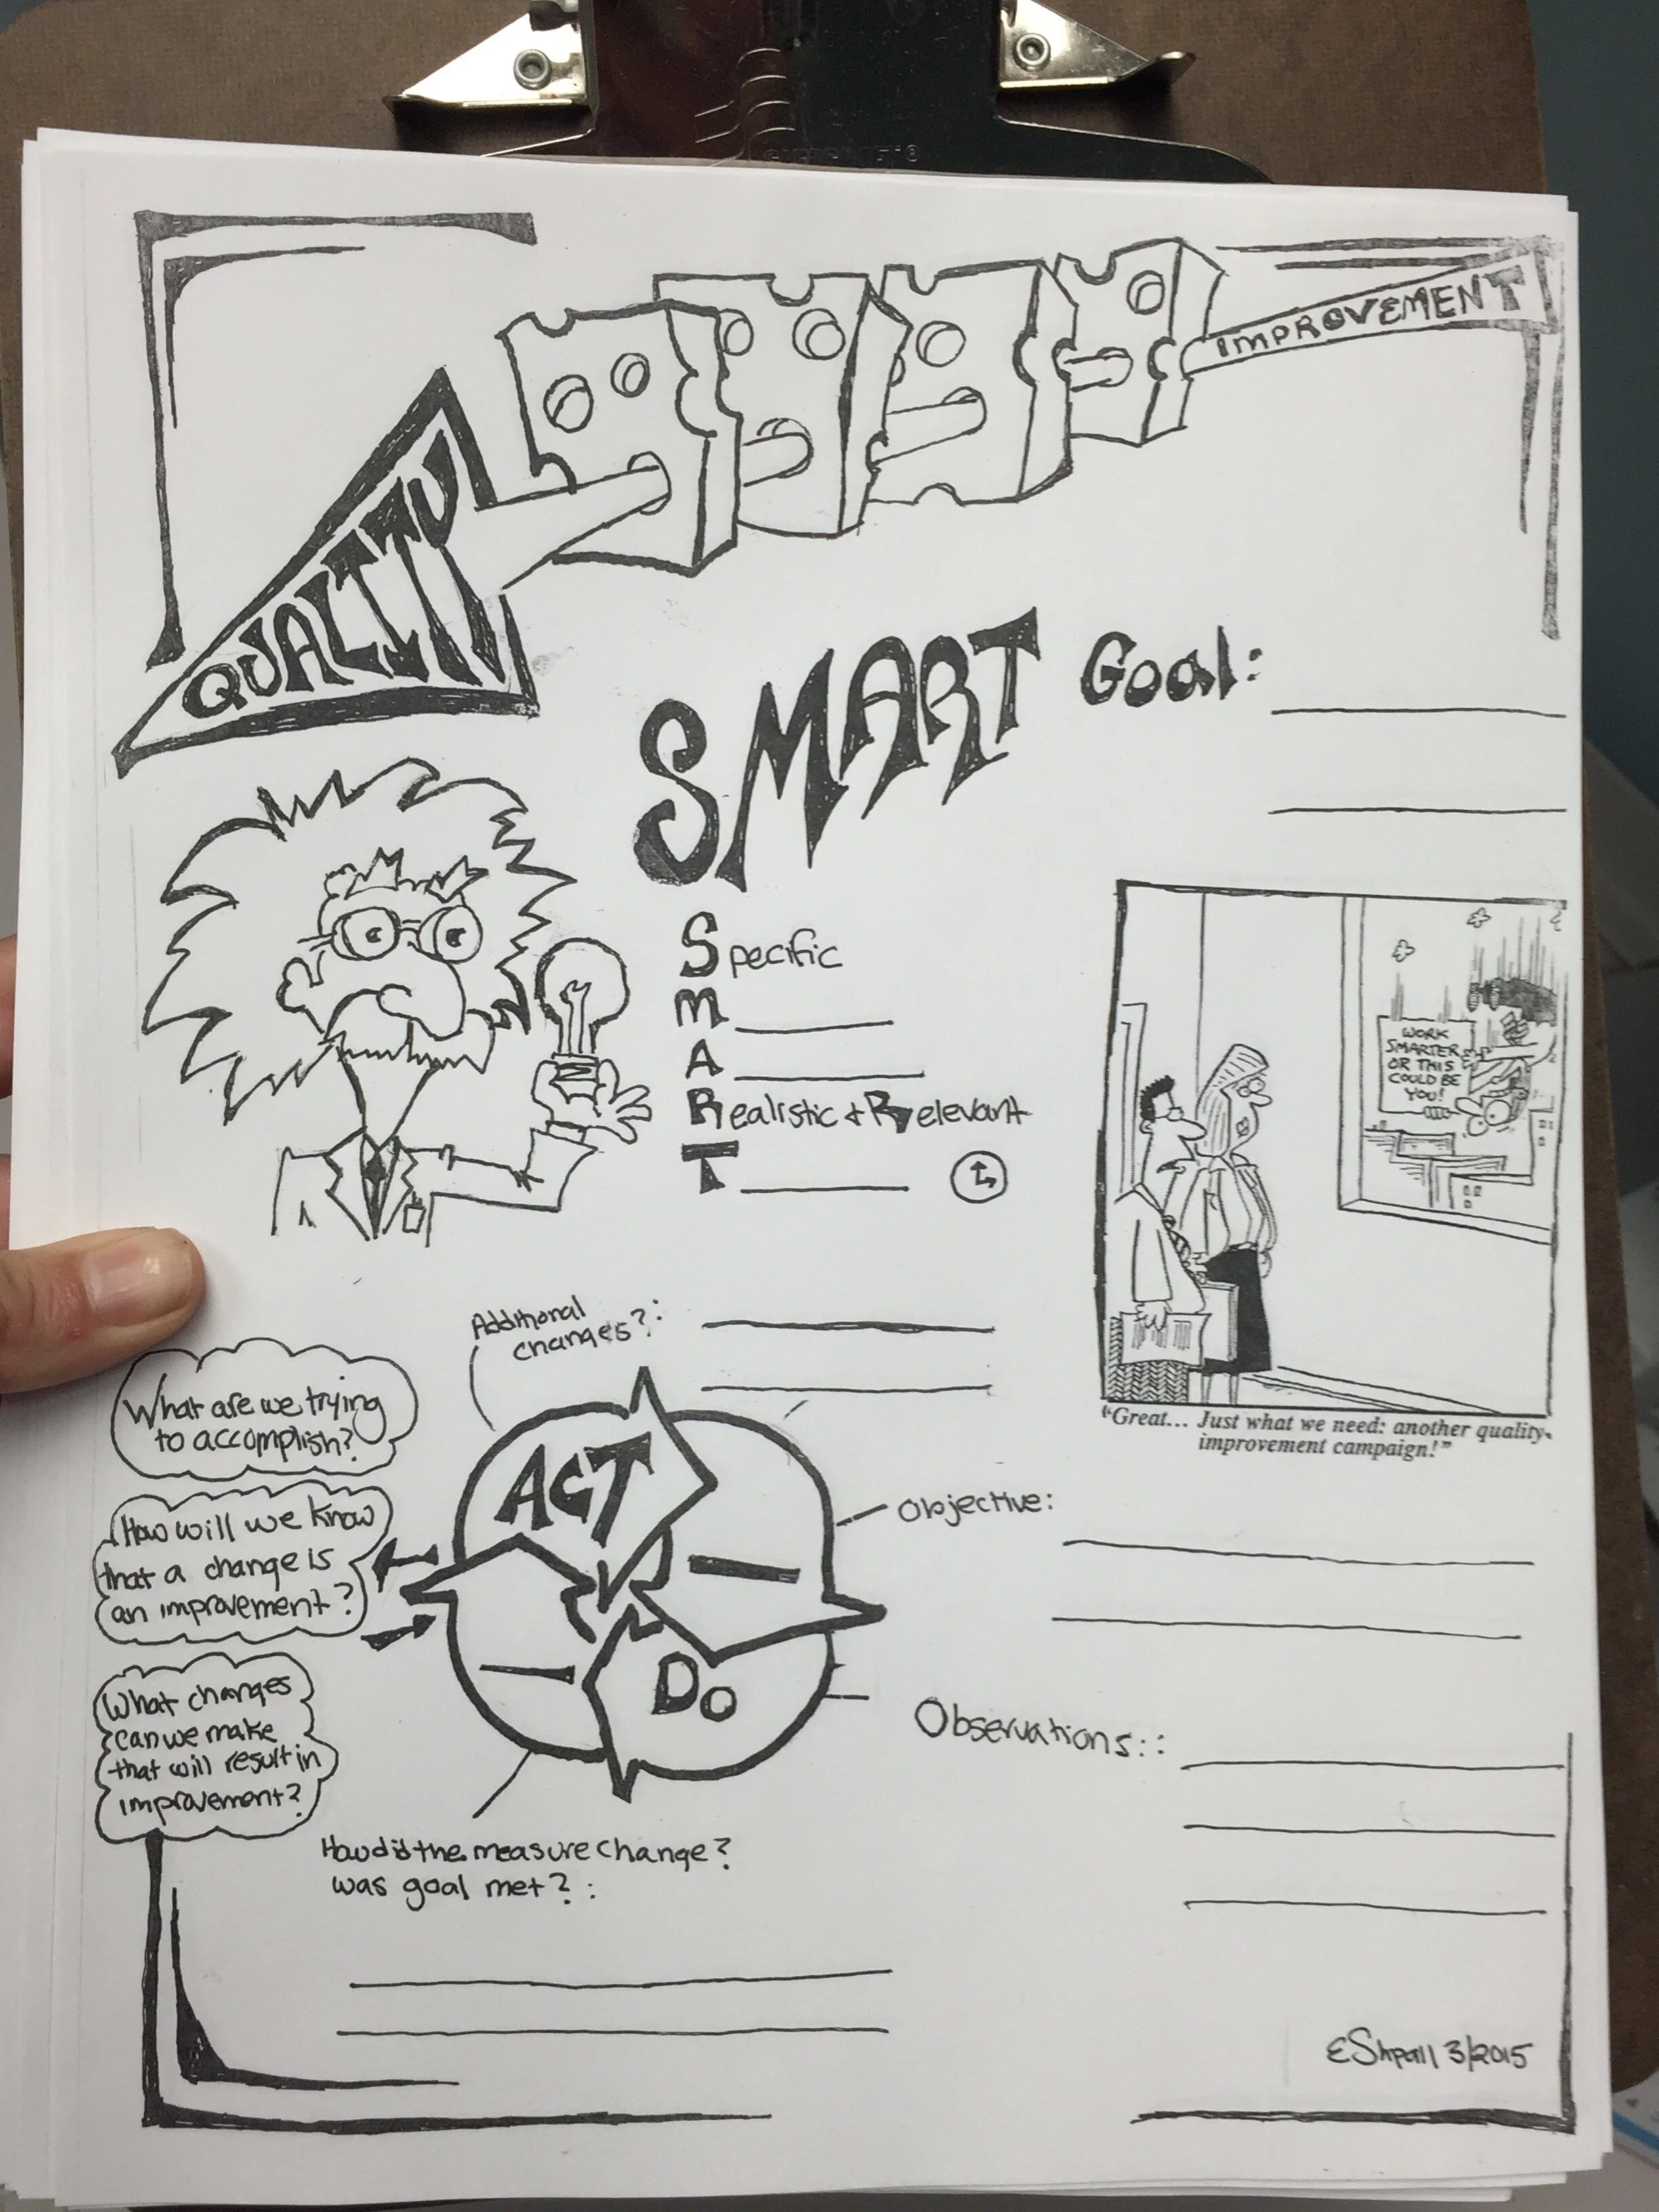 QUALITY
IMPROVEMENT
SMART Goal:
Specific
M
A
Realistic + Relevant
T
WORK
SMARTER
OR THIS
COULD BE
YOU!
"Great... Just what we need: another quality-
improvement campaign!"
Additional
changes?:
What are we trying
to accomplish?
How will we know
that a change is
an improvement?
What changes
can we make
that will result in
improvement?
ACT
Do
Objective:
Observations::
How did the measure change?
was goal met?:
EShpall 3/2015